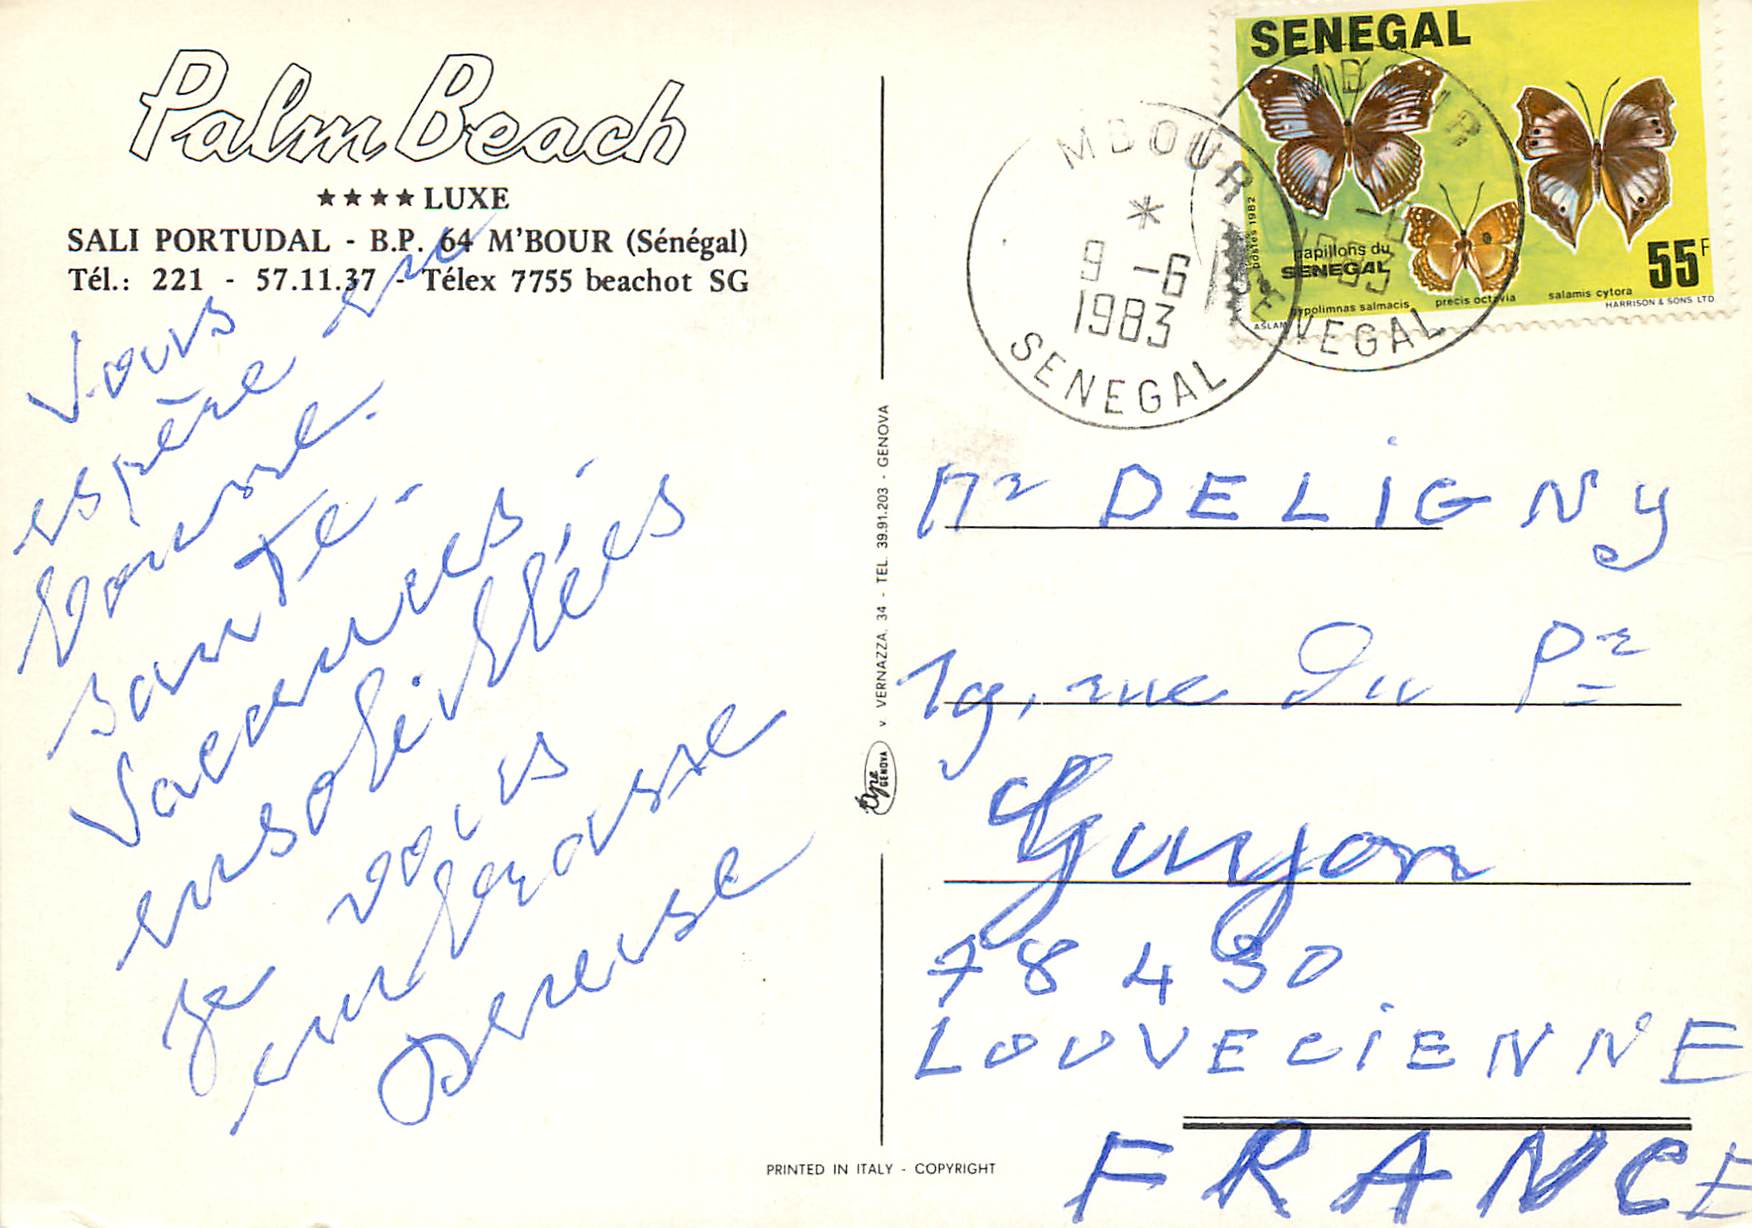 Palm Beach
★★★★ LUXE
SALI PORTUDAL - B.P. 64 M'BOUR (Sénégal)
Tél.: 221 - 57.11.37 - Télex 7755 beachot SG
Vous
espère en
bonne
santé.
Vacances
ensoleillées
Je vous
embrasse
Denise
V. VERNAZZA, 34 - TEL. 39.91.203 - GENOVA
GENOVA
PRINTED IN ITALY - COPYRIGHT
SENEGAL
postes 1982
papillons du
SENEGAL
hypolimnas salmacis
precis octavia
salamis cytora
55F
HARRISON & SONS LTD
ASLAN
MBOUR
*
9 -6
1983
SENEGAL
MBOUR
1983
SENEGAL
Mr DELIGNY
19, rue Du Pr
Guyon
78430
LOUVECIENNE
FRANCE